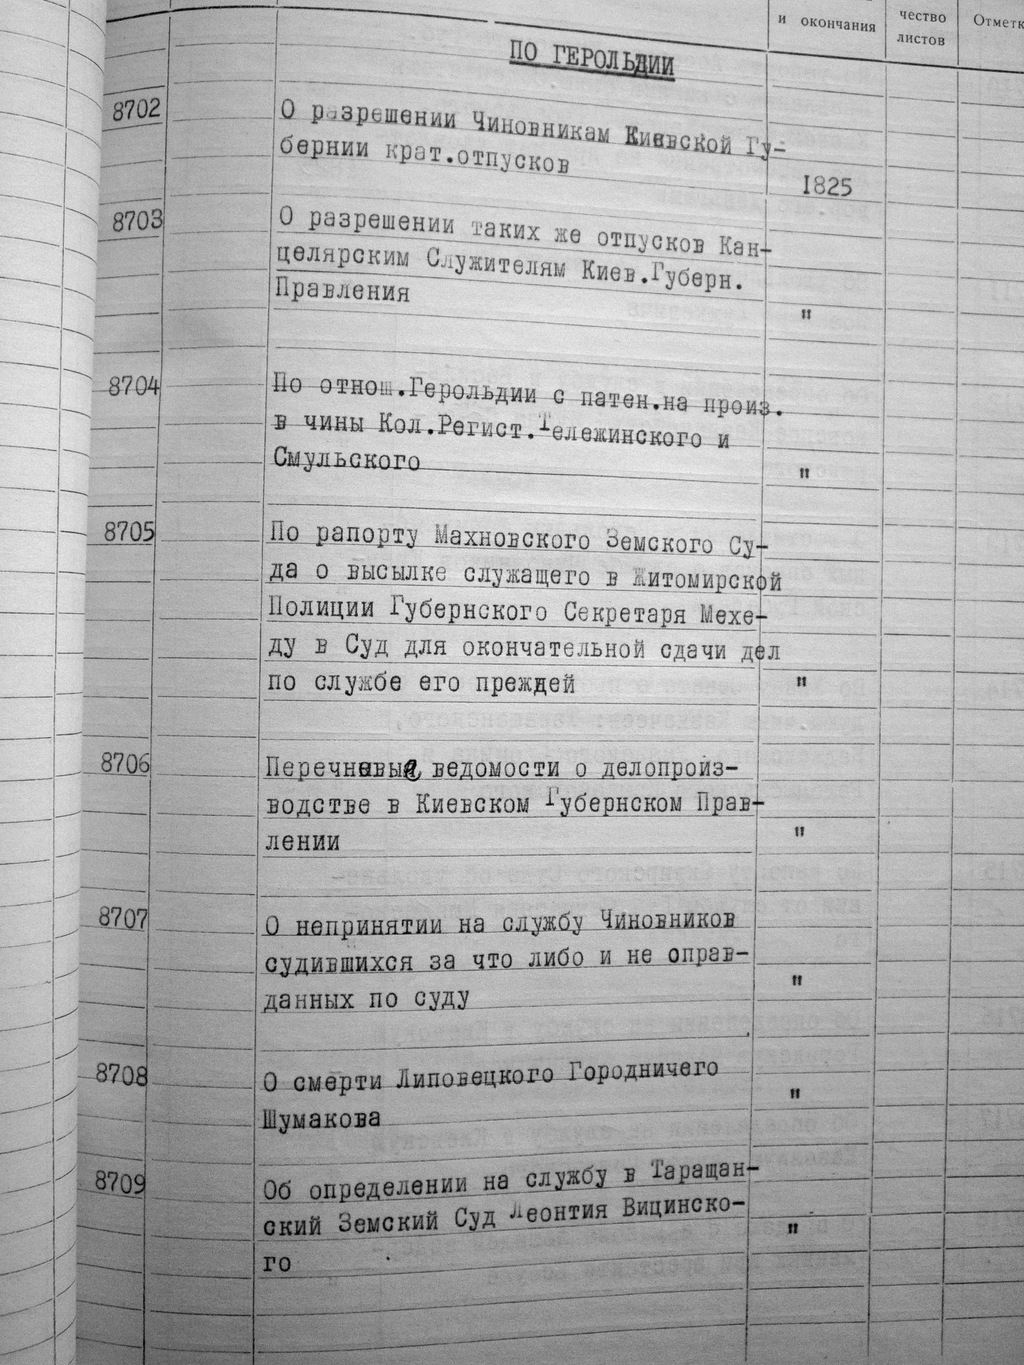 и окончания
чество
листов
Отметк
ПО ГЕРОЛЬДИИ
8702
О разрешении Чиновникам Киевской Гу-
бернии крат.отпусков
1825
8703
О разрешении таких же отпусков Кан-
целярским Служителям Киев.Губерн.
Правления
"
8704
По отнош.Герольдии с патен.на произ.
в чины Кол.Регист.Тележинского и
Смульского
"
8705
По рапорту Махновского Земского Су-
да о высылке служащего в Житомирской
Полиции Губернского Секретаря Мехе-
ду в Суд для окончательной сдачи дел
по службе его преждей
"
8706
Перечневые ведомости о делопроиз-
водстве в Киевском Губернском Прав-
лении
"
8707
О непринятии на службу Чиновников
судившихся за что либо и не оправ-
данных по суду
"
8708
О смерти Липовецкого Городничего
Шумакова
"
8709
Об определении на службу в Таращан-
ский Земский Суд Леонтия Вицинско-
го
"